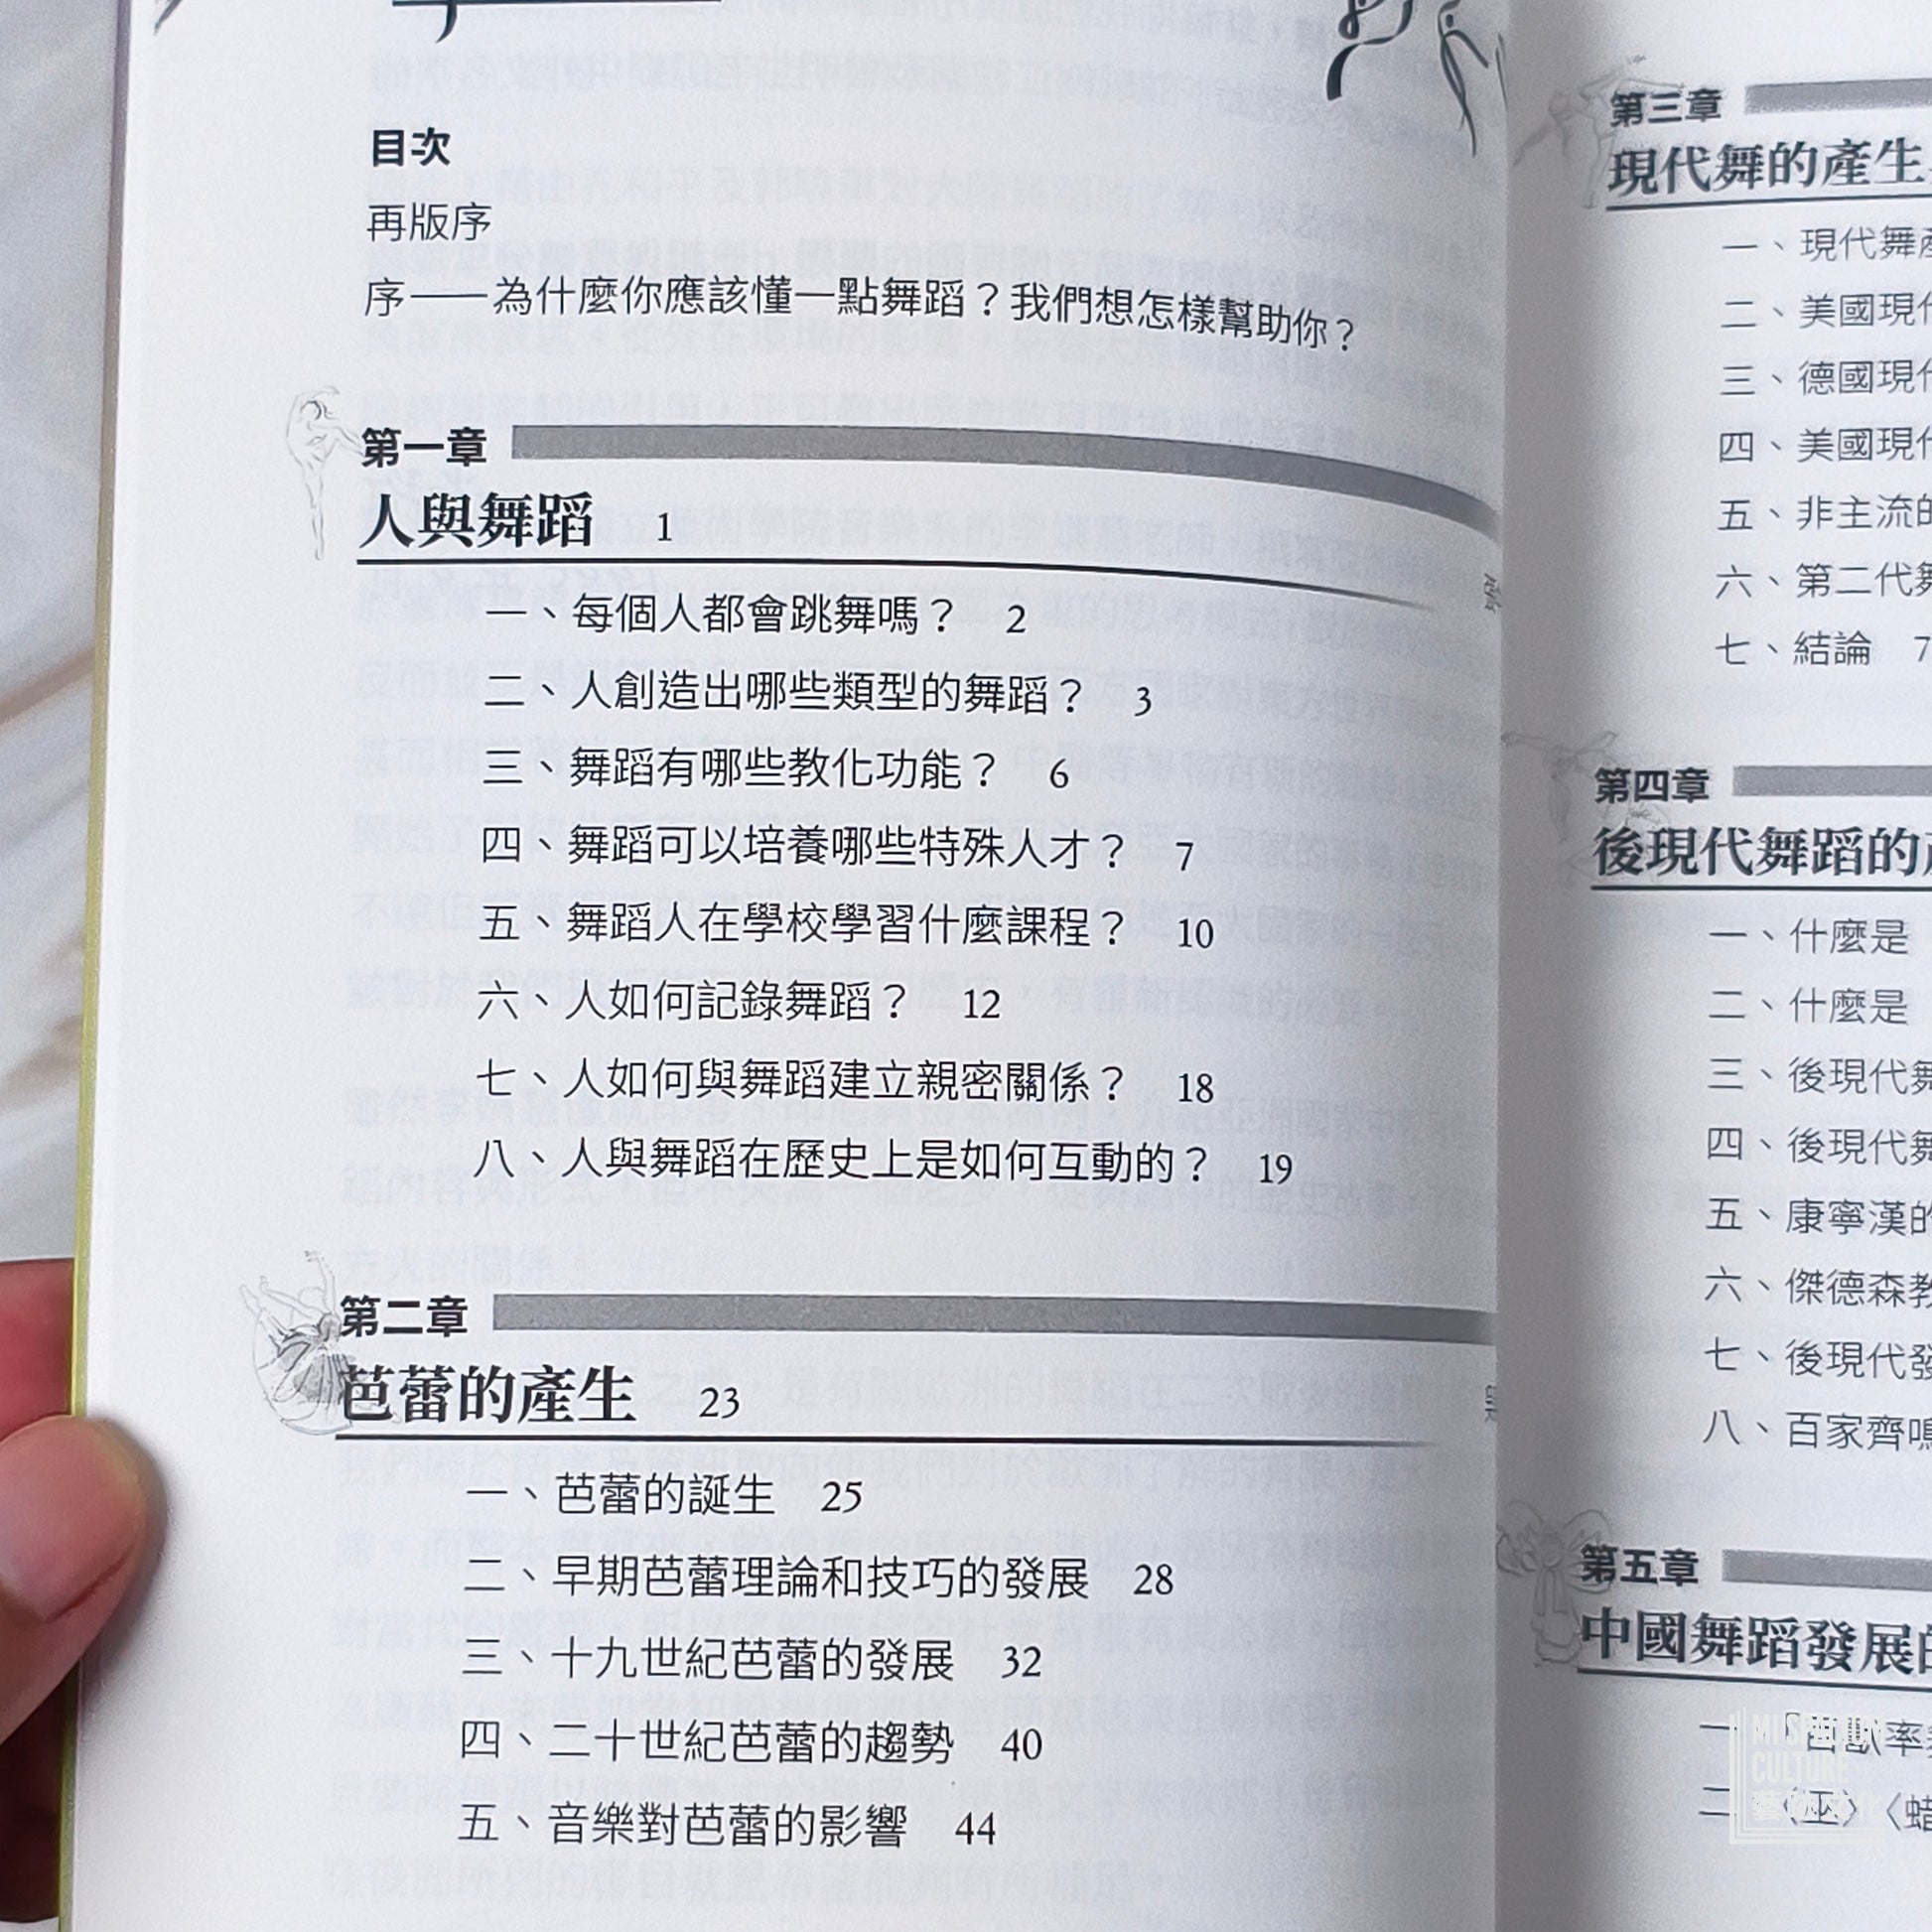 目次
再版序
序——為什麼你應該懂一點舞蹈？我們想怎樣幫助你？
第一章
人與舞蹈 1
一、每個人都會跳舞嗎？ 2
二、人創造出哪些類型的舞蹈？ 3
三、舞蹈有哪些教化功能？ 6
四、舞蹈可以培養哪些特殊人才？ 7
五、舞蹈人在學校學習什麼課程？ 10
六、人如何記錄舞蹈？ 12
七、人如何與舞蹈建立親密關係？ 18
八、人與舞蹈在歷史上是如何互動的？ 19
第二章
芭蕾的產生 23
一、芭蕾的誕生 25
二、早期芭蕾理論和技巧的發展 28
三、十九世紀芭蕾的發展 32
四、二十世紀芭蕾的趨勢 40
五、音樂對芭蕾的影響 44
第三章
現代舞的產生
一、現代舞
二、美國現代
三、德國現代
四、美國現代
五、非主流的
六、第二代舞
七、結論 7
第四章
後現代舞蹈的
一、什麼是
二、什麼是
三、後現代舞
四、後現代舞
五、康寧漢的
六、傑德森教
七、後現代發
八、百家齊鳴
第五章
中國舞蹈發展的
一、
二、〈巫〉〈蜡
CULTURE